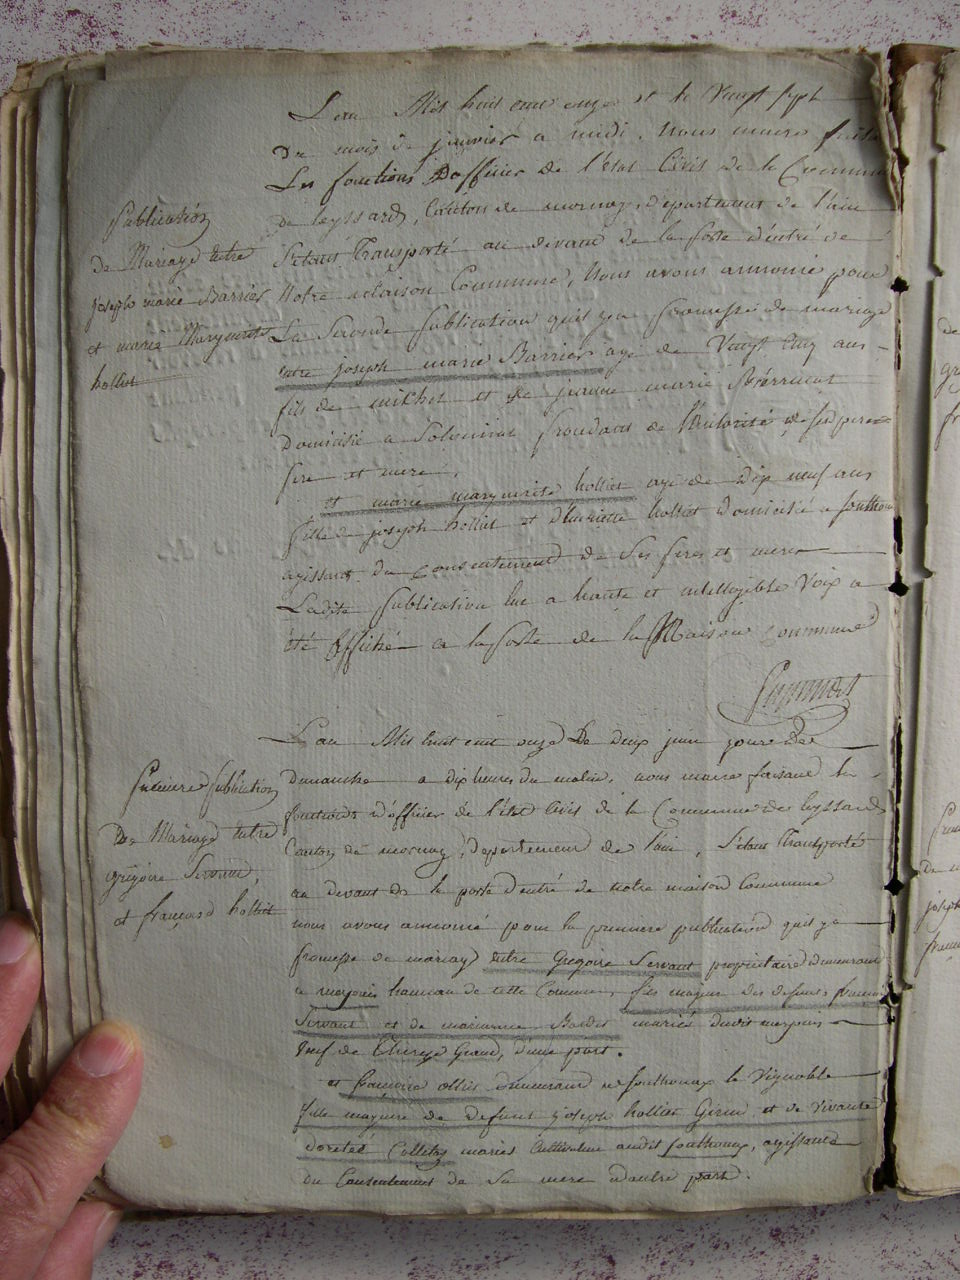 L'an Mil huit cent onze et le Vingt sept
Du mois de janvier a midi, Nous maire faisant
Les fonctions D'officier de l'état Civil de la Commune
de leyssard, Canton de mornay, département de l'ain
S'étant Transporté au devant de la porte d'entré de
Notre maison Commune, Nous avons annoncé pour
La Seconde publication qu'il ya promesse de mariage
entre joseph marie Barrier agé de Vingt Cinq ans
fils de michel et de jeanne marie
Domicilié a Solomiat procedant de l'autorité de ses père
pere et mere,
et marie marguerite hollier agé de Dix neuf ans
fille de joseph hollier et d'henriette hollier Domicilié a
agissant du Consentement de Ses peres et mere
Ladite publication lue a haute et intellegible Voix a
été affiché a la porte de la Maison Commune
Publication
De Mariage entre
joseph marie Barrier
et marie Marguerite
hollier
L'an Mil huit cent onze Le Deux juin jour de
Dimanche a dix heures du matin, nous maire faisant les
fonctions d'officier de l'état Civil de la Commune de leyssard
Canton de mornay, departement de l'ain, S'étant Transporté
au devant de la porte d'entré de notre maison Commune
nous avons annoncé pour la premiere publication qu'il ya
promesse de mariage entre Gregoire Servant propriétaire demeurant
a hameau de cette Commune, fils majeur des defunts
Servant et de marianne mariés dudit
Veuf de d'une part.
et francoise ollier demeurant a le Vignoble
fille majeure de defunt joseph hollier et de Vivante
mariés Cultivateur audit agissant
du Consentement de Sa mere d'autre part.
Premiere publication
De Mariage entre
gregoire Servant,
et françoise hollier